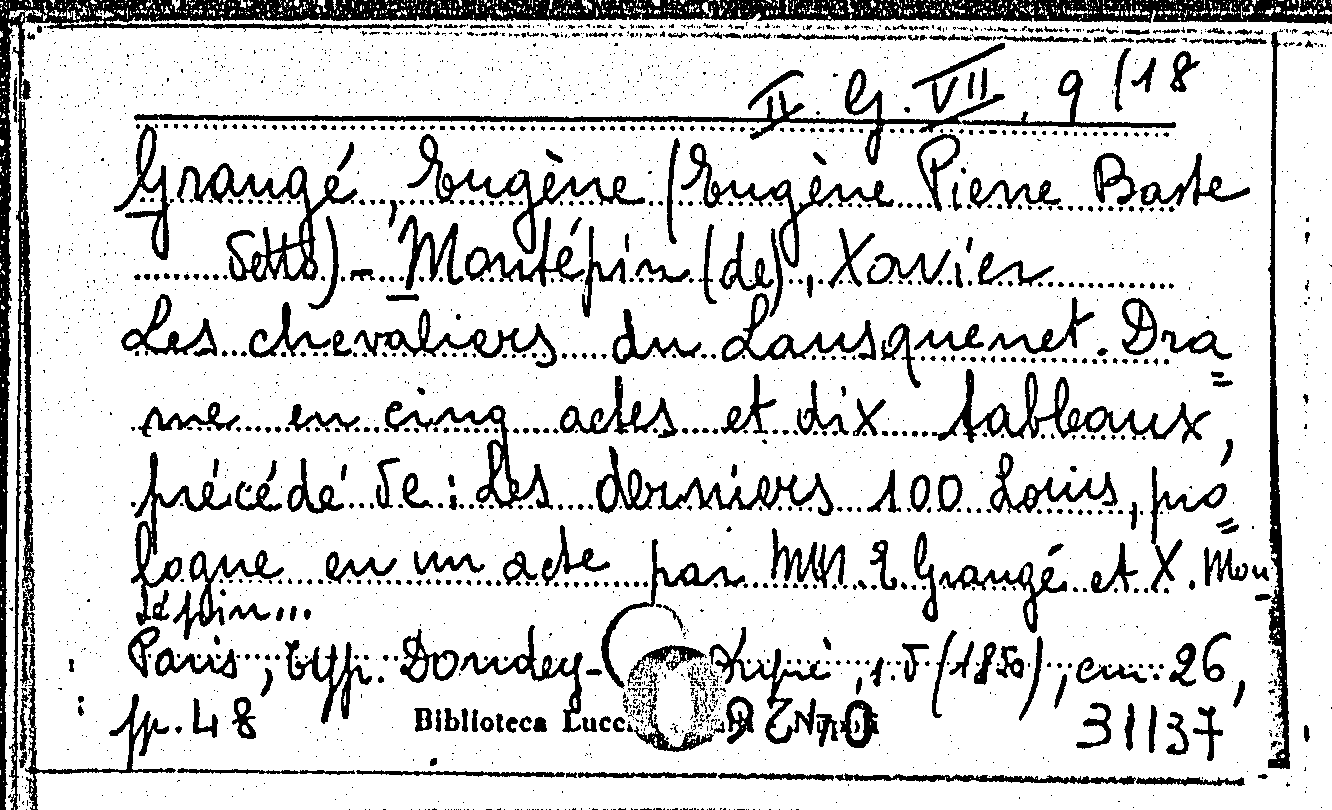 II. G. VII, 9 (18
Grangé, Eugène (Eugène Pierre Baste
detto) - Montépin (de), Xavier
Les chevaliers du Lansquenet. Dra=
me en cinq actes et dix tableaux,
précédé de: Les derniers 100 Louis, pro=
logue en un acte par MM E Grangé et X. Mon-
tépin...
Paris, typ. Dondey-Dupré, s. d (1850), cm. 26,
pp. 48
Biblioteca Lucc
31137